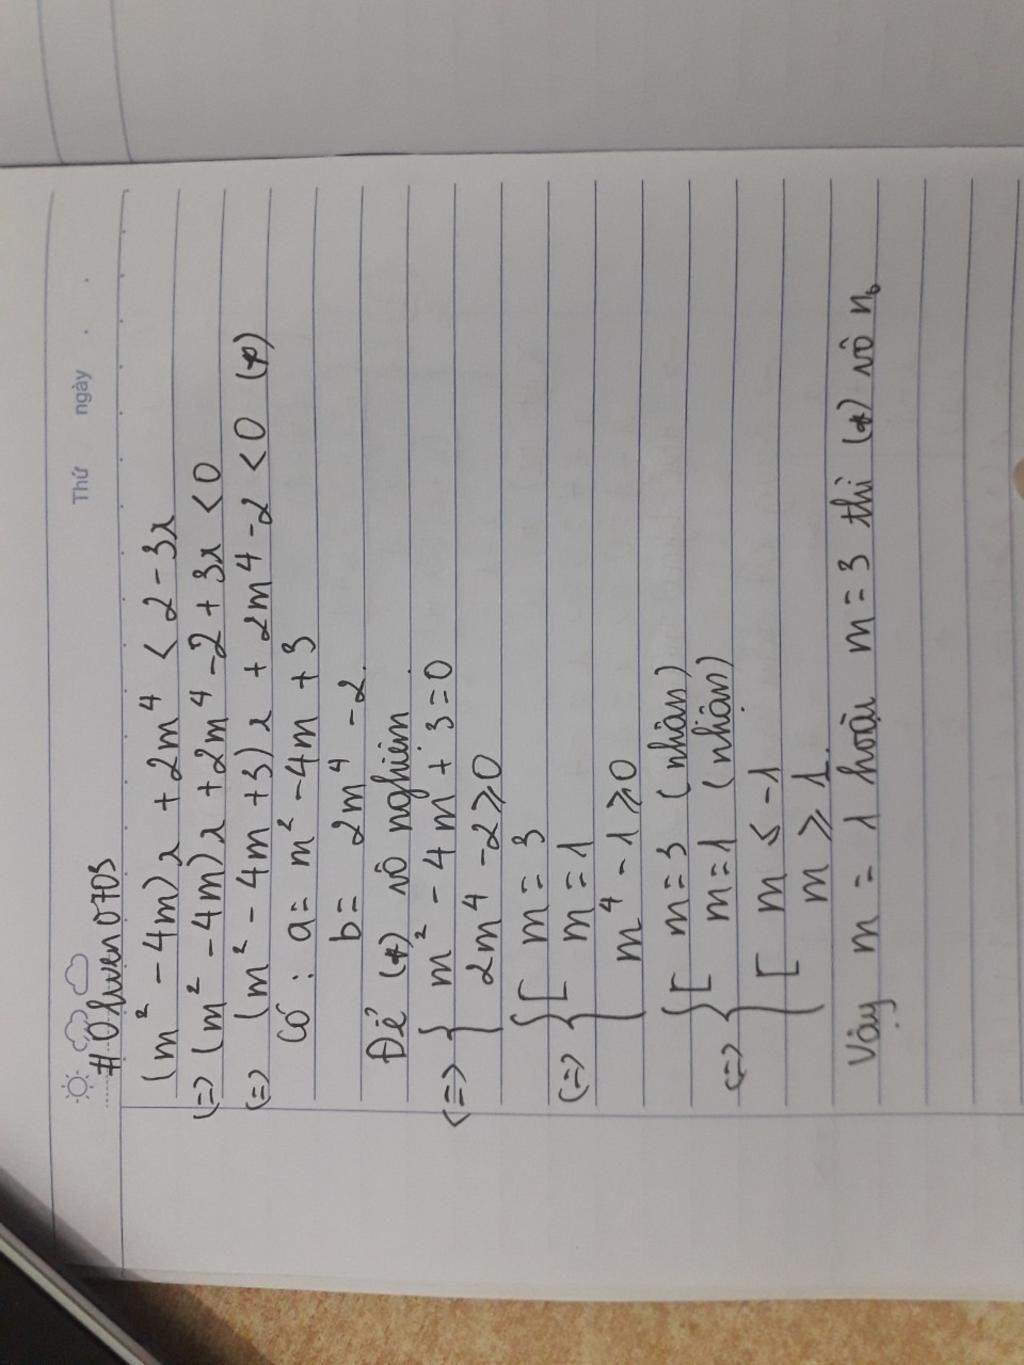 Thứ ngày
#Ohwen0703
(m² - 4m)x + 2m⁴ < 2 - 3x
(=) (m² - 4m)x + 2m⁴ - 2 + 3x < 0
(=) (m² - 4m + 3)x + 2m⁴ - 2 < 0 (*)
Có : a = m² - 4m + 3
b = 2m⁴ - 2.
Để (*) vô nghiệm
<=> { m² - 4m + 3 = 0
2m⁴ - 2 ⩾ 0
(=) { [ m = 3
m = 1
m⁴ - 1 ⩾ 0
(=) { [ m = 3 (nhận)
m = 1 (nhận)
[ m ⩽ -1
m ⩾ 1.
Vậy m = 1 hoặc m = 3 thì (*) vô n₀